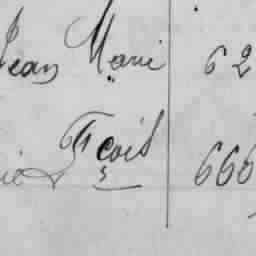 Jean Marie 62
Fçois 666